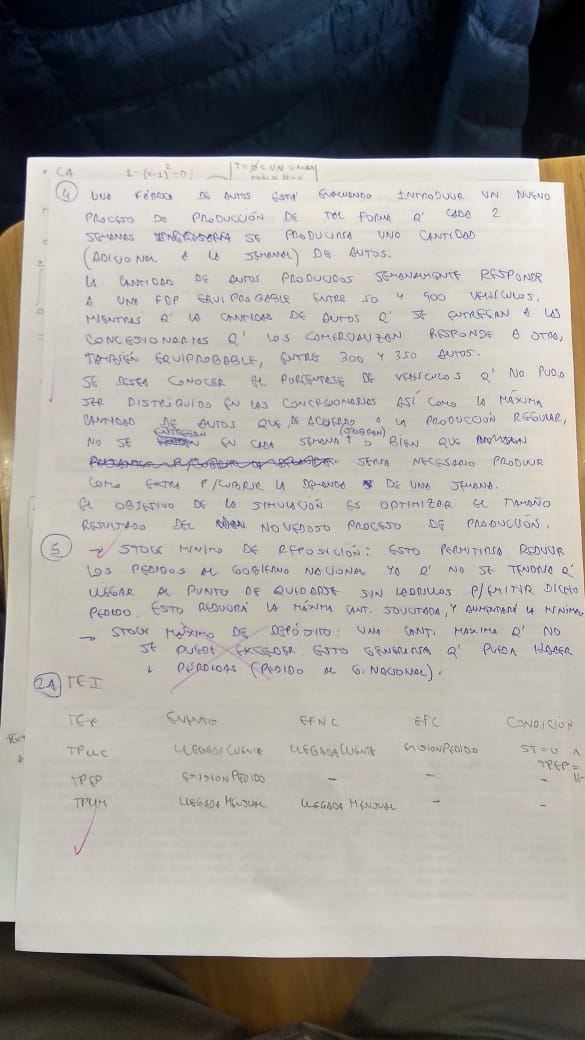 CA 1-(x-1)²=0
4 UNA FÁBRICA DE AUTOS ESTÁ EVALUANDO INTRODUCIR UN NUEVO
PROCESO DE PRODUCCIÓN DE TAL FORMA Q' CADA 2
SEMANAS SE PRODUCIRÍA UNA CANTIDAD
(ADICIONAL A LA SEMANAL) DE AUTOS.
LA CANTIDAD DE AUTOS PRODUCIDOS SEMANALMENTE RESPONDE
A UNA FDP EQUIPROBABLE ENTRE 50 Y 900 VEHÍCULOS,
MIENTRAS Q' LA CANTIDAD DE AUTOS Q' SE ENTREGAN A LAS
CONCESIONARIAS Q' LOS COMERCIALIZAN RESPONDE A OTRA,
TAMBIÉN EQUIPROBABLE, ENTRE 300 Y 350 AUTOS.
SE DESEA CONOCER EL PORCENTAJE DE VEHÍCULOS Q' NO PUDO
SER DISTRIBUIDO EN LAS CONCESIONARIAS ASÍ COMO LA MÁXIMA
CANTIDAD DE AUTOS QUE, DE ACUERDO A LA PRODUCCIÓN REGULAR,
NO SE ENTREGAN EN CADA SEMANA (SOBRAN) O BIEN QUE
SERÍA NECESARIO PRODUCIR
COMO EXTRA P/CUBRIR LA DEMANDA DE UNA SEMANA.
EL OBJETIVO DE LA SIMULACIÓN ES OPTIMIZAR EL TAMAÑO
RESULTADO DEL NOVEDOSO PROCESO DE PRODUCCIÓN.
5 → STOCK MÍNIMO DE REPOSICIÓN: ESTO PERMITIRÍA REDUCIR
LOS PEDIDOS AL GOBIERNO NACIONAL YA Q' NO SE TENDRÍA Q'
LLEGAR AL PUNTO DE QUEDARSE SIN LADRILLOS P/EMITIR DICHO
PEDIDO. ESTO REDUCIRÁ LA MÁXIMA CANT. SOLICITADA, Y AUMENTARÁ LA MÍNIMA.
→ STOCK MÁXIMO DE DEPÓSITO: UNA CANT. MAXIMA Q' NO
SE PUEDE EXCEDER. ESTO GENERARÍA Q' PUEDA HABER
PÉRDIDAS (PEDIDO AL G. NACIONAL).
2A TEI
TEF EVENTO EFNC EFC CONDICIÓN
TPLLC LLEGADA CLIENTE LLEGADA CLIENTE EMISION PEDIDO ST=0 ∧
TPEP=
TPEP EMISION PEDIDO - - - H.V
TPLLM LLEGADA MENSUAL LLEGADA MENSUAL - -